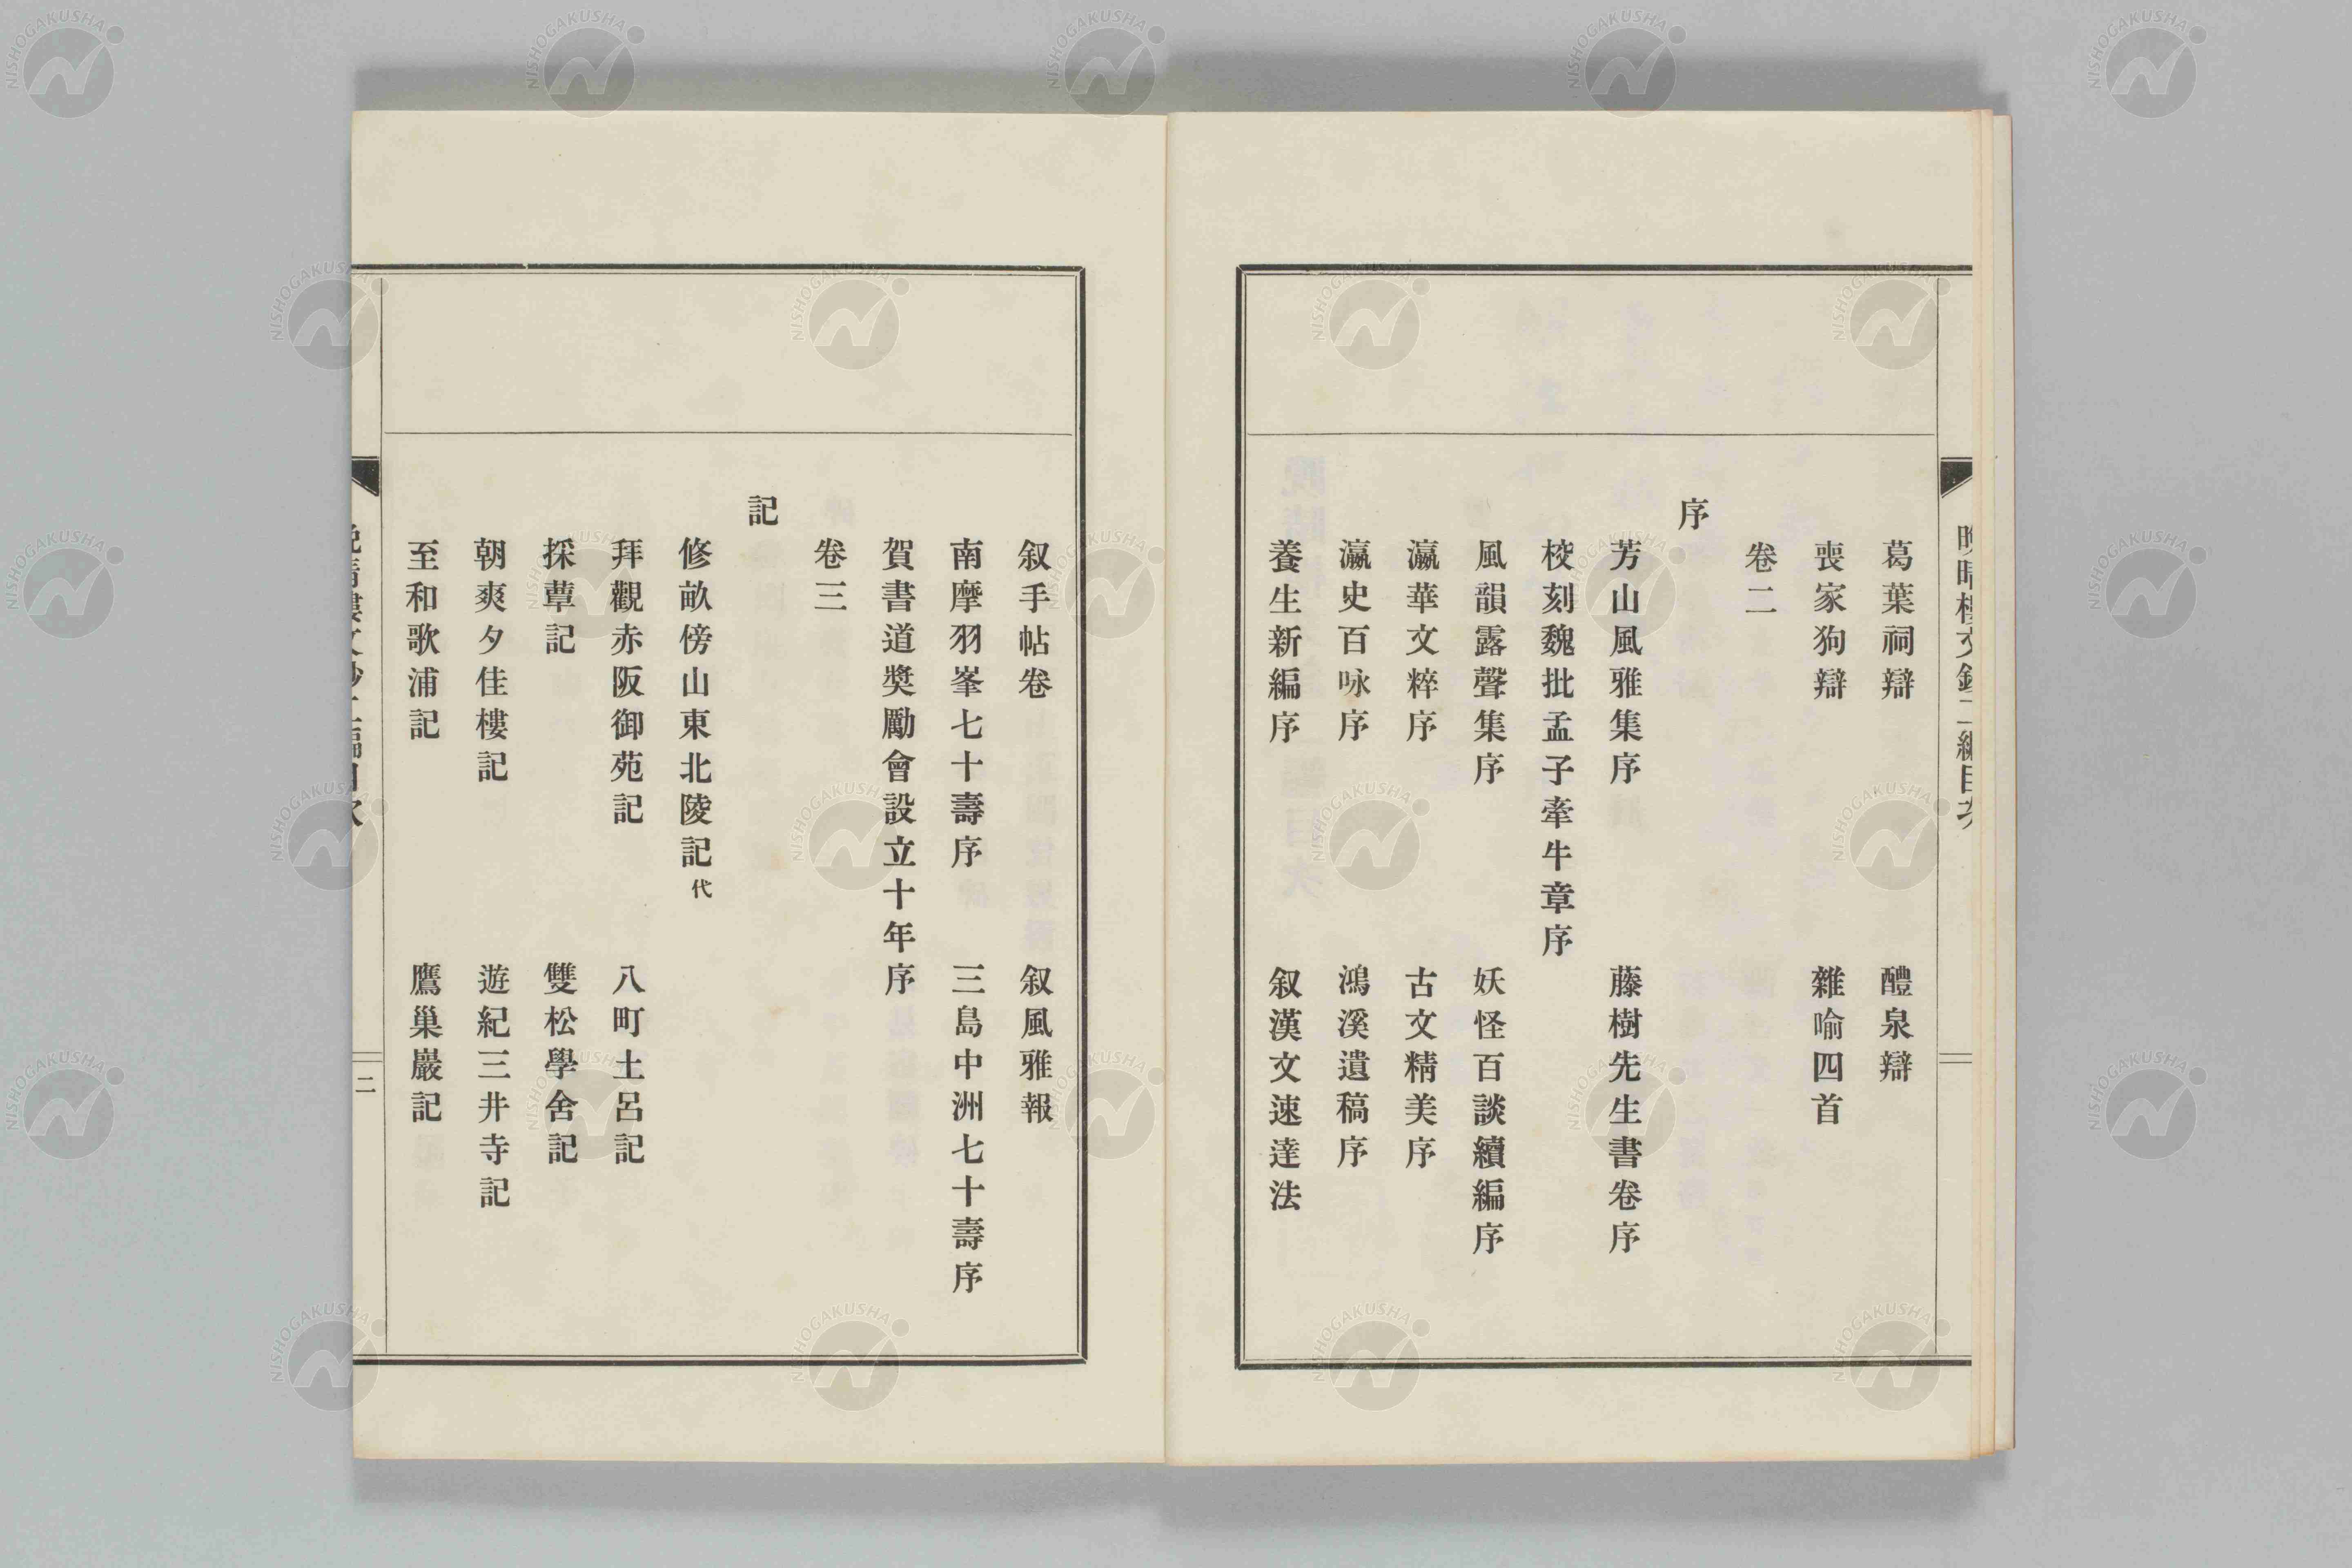 葛葉祠辯　醴泉辯
喪家狗辯　雜喻四首
卷二
序
芳山風雅集序　藤樹先生書卷序
校刻魏批孟子牽牛章序
風韻露聲集序　妖怪百談續編序
瀛華文粹序　古文精美序
瀛史百咏序　鴻溪遺稿序
養生新編序　叙漢文速達法
叙手帖卷　叙風雅報
南摩羽峯七十壽序　三島中洲七十壽序
賀書道奬勵會設立十年序
卷三
記
修畝傍山東北陵記代
拜觀赤阪御苑記　八町土呂記
採蕈記　雙松學舍記
朝爽夕佳樓記　遊紀三井寺記
至和歌浦記　鷹巢巖記
二
NISHOGAKUSHA